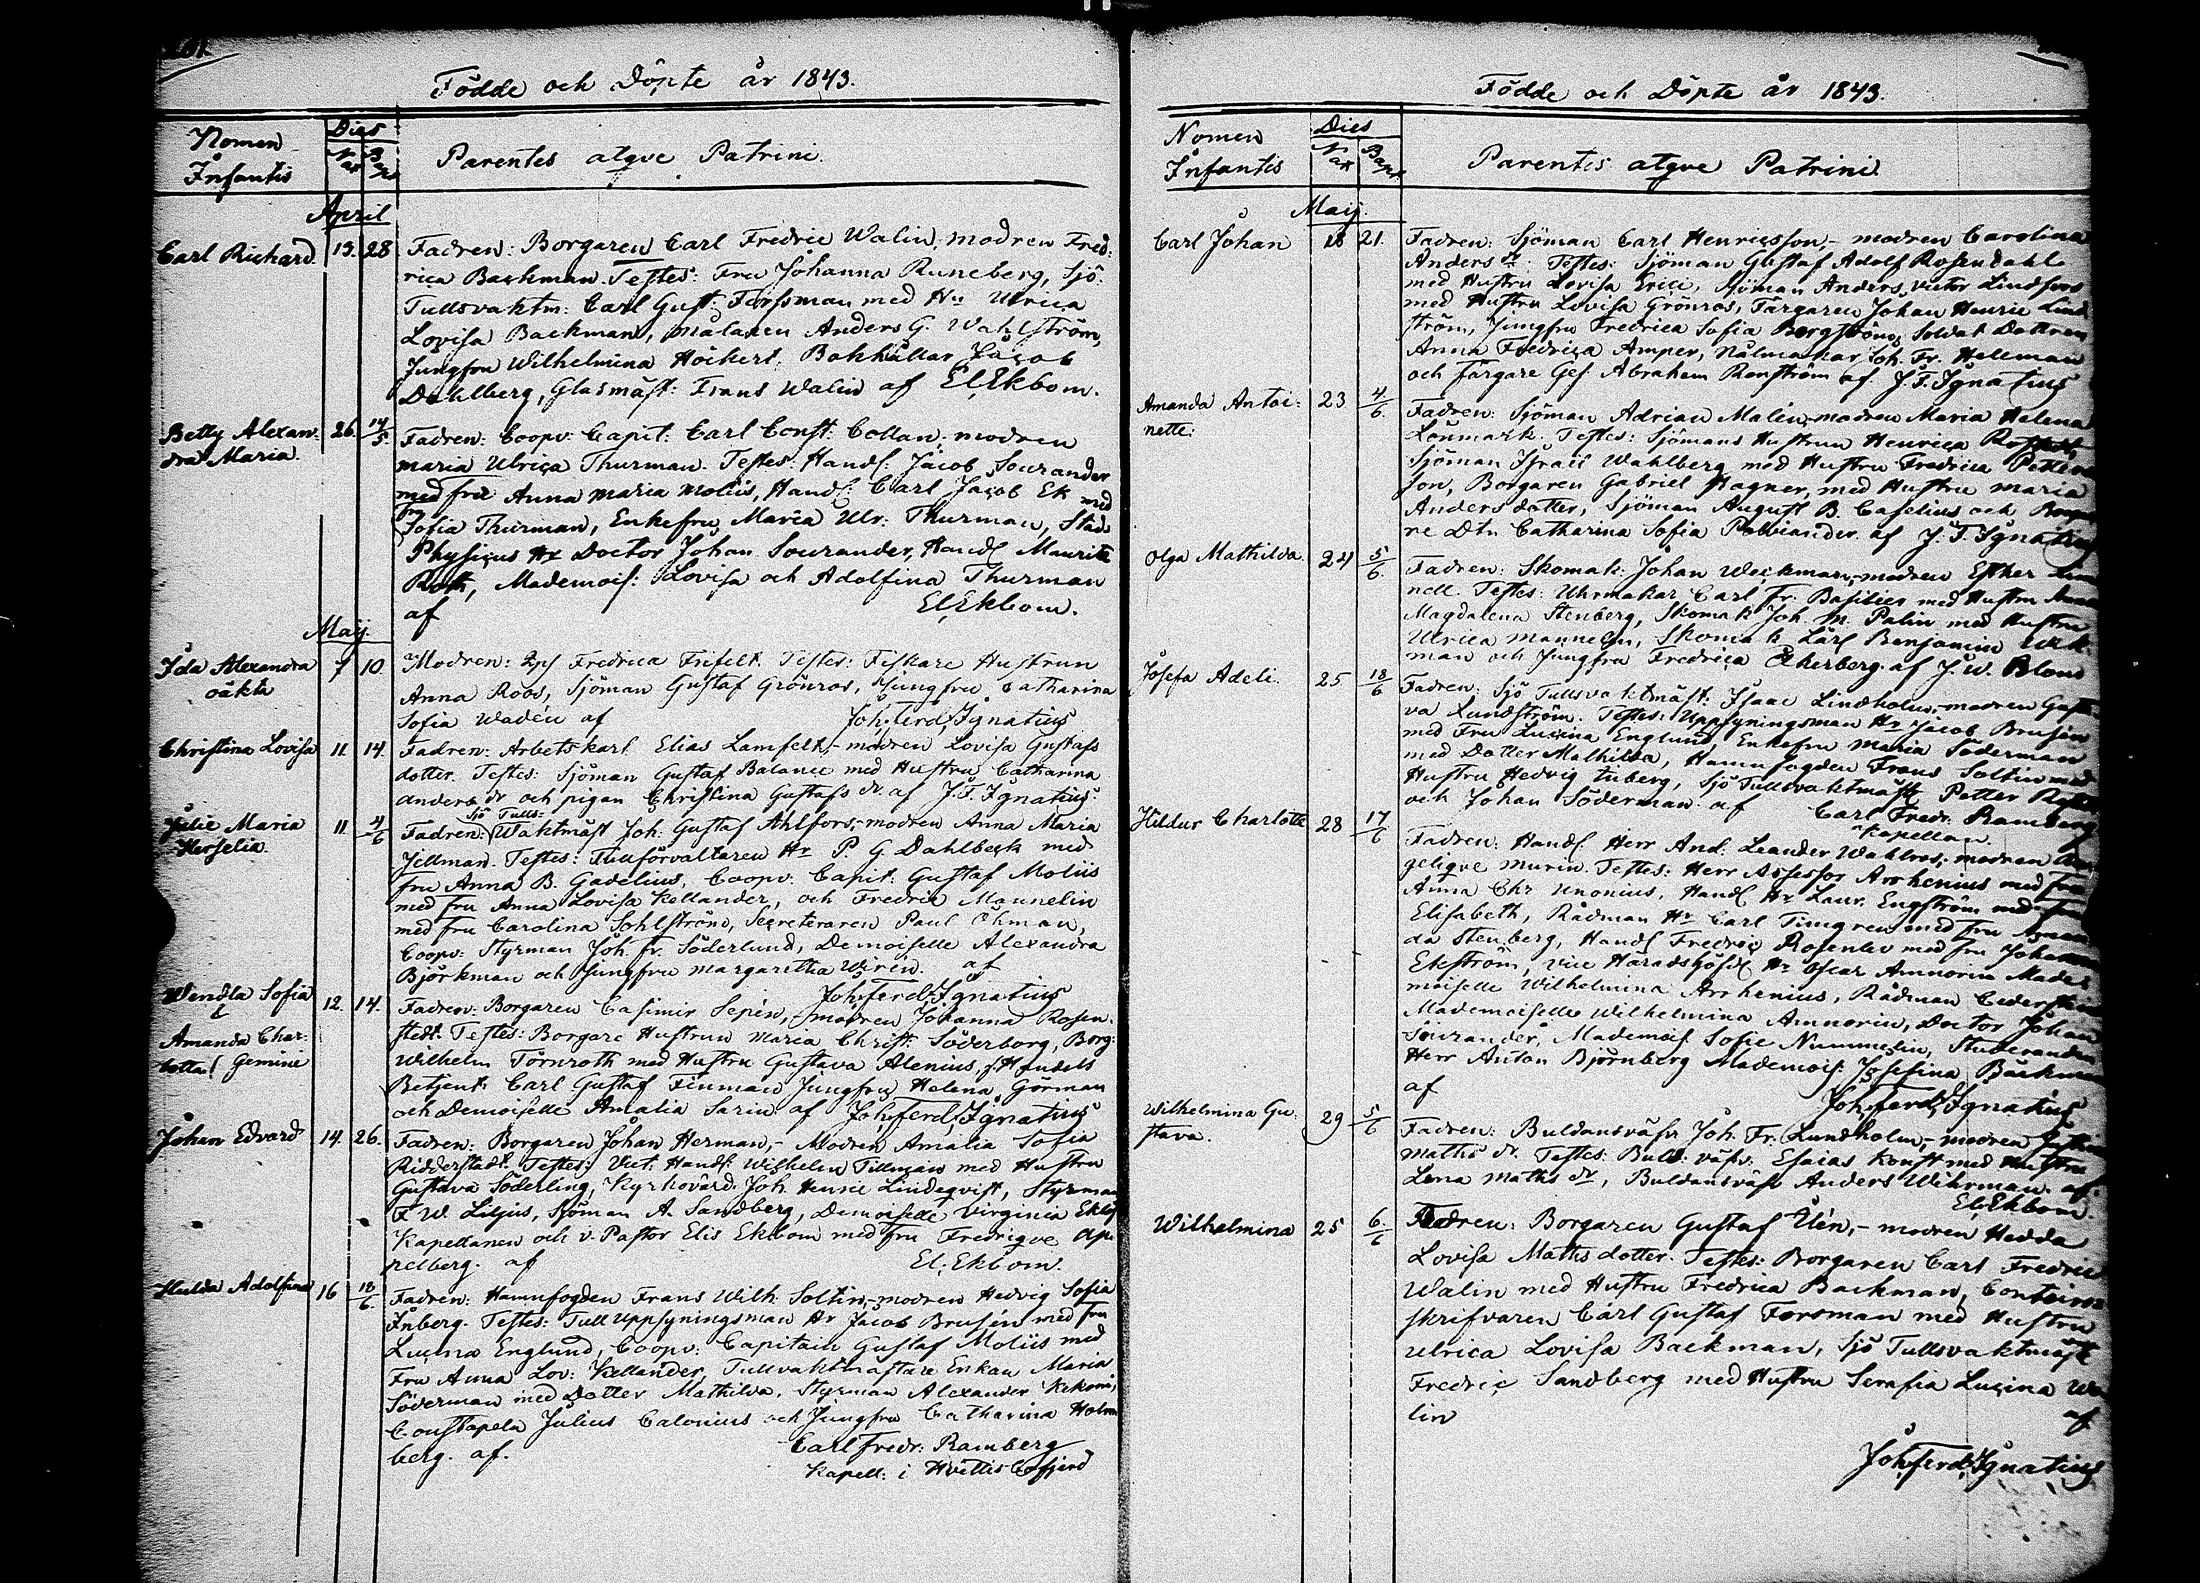 Födde och Döpte år 1843.
Nomen Infantis
Dies
Nat Bapt
Parentes atqve Patrini.
April
Carl Richard. 19. 28 Fadren: Borgaren Carl Fredric Walin, modren Fred:
rica Backman. Testes: Fru Johanna Runeberg, Sjö:
Tullsvaktm: Carl Gust: Forssman med Hu Ulrica
Lovisa Backman, målaren Anders G. Wahlström,
Jungfru Wilhelmina Höckert, Bokhållar Jacob
Dahlberg, Glasmäst: Frans Walin af El Ekbom.
Betty Alexan: 26. 14/5. Fadren: Coopv: Capit: Carl Const: Collan, modren
dra Maria. Maria Ulrica Thurman. Testes: Handl: Jacob Sourander
med fru Anna Maria Moliis, Handl: Carl Jacob Ek med
fr Sofia Thurman, Enkefru Maria Ulr. Thurman, Stads
Physicus Hr Doctor Johan Sourander, Handl Mauritz
Roth, Mademois: Lovisa och Adolfina Thurman
af El Ekbom.
Maij.
Ida Alexandra 7 10. Modren: Fredrica Frifelt. Testes: Fiskare Hustrun
oäkta Anna Roos, Sjöman Gustaf Grönros, Jungfru Catharina
Sofia Wadén af Joh. Ferd. Ignatius
Christina Lovisa 11. 14. Fadren: Arbetskarl Elias Lamfelt, modren Lovisa Gustafs
dotter. Testes: Sjöman Gustaf Balance med Hustru Catharina
Anders dr och pigan Christina Gustafs dr. af J. F. Ignatius.
Julie Maria 11. 4/6 Fadren: Sjö Tulls: Waktmäst Joh: Gustaf Ahlfors, modren Anna Maria
Herselia. Jillman. Testes: Tullförvaltaren Hr P. G. Dahlbeck med
fru Anna B. Gadelius, Coopv: Capit: Gustaf Moliis
med fru Anna Lovisa Kellander, och Fredric Mannelin
med fru Carolina Sohlström, Secreteraren Paul Öhman,
Coopv: Styrman Joh. Fr. Söderlund, Demoiselle Alexandra
Björkman och Jungfru Margaretha Wirén. af
Joh. Ferd. Ignatius
Wendla Sofia 12. 14. Fadren: Borgaren Casimir Sepén, modren Johanna Rosen:
&
Amanda Char: stedt. Testes: Borgare Hustrun Maria Christ: Söderborg, Borg:
lotta Gemini Wilhelm Törnroth med Hustru Gustava Alenius, Handels
Betjent: Carl Gustaf Finman Jungfru Helena Görman
och Demoiselle Amalia Sarin af Joh. Ferd. Ignatius
Johan Edvard 14. 26. Fadren: Borgaren Johan Herman, Modren Amalia Sofia
Ridderstadt. Testes: Vict: Handl: Wilhelm Tillman med Hustru
Gustava Söderling, Kyrkovärd. Joh. Henric Lindeqvist, Styrman
F. W. Liljus, Sjöman A. Sandberg, Demoiselle Virginia
Kapellanen och v. Pastor Elis Ekbom med fru Fredriqve Ap:
pelberg. af El: Ekbom.
Hulda Adolfina 16 18/6. Fadren: Hamnfogden Frans Wilh: Soltin, modren Hedvig Sofia
Inberg. Testes: Tull Uppsyningsman Hr Jacob Brusén med fru
Lucina Englund, Coopv: Capitain Gustaf Moliis med
Fru Anna Lov: Kellander, Tullvaktmästare Enkan Maria
Söderman med Dotter Mathilda, Styrman Alexander
Constapeln Julius Calonius och Jungfru Catharina Holm
berg. af. Carl Fredr: Ramberg
Kapell: i Hvittis Cofjerd
Födde och Döpte år 1843.
Nomen Infantis
Dies
Nat Bapt
Parentes atqve Patrini
Maij.
Carl Johan 18 21. Fadren: Sjöman Carl Henricsson, modren Carolina
Anders dr. Testes: Sjöman Gustaf Adolf Rosendahl
med Hustru Lovisa Erici, Sjöman Anders Victor Lindfors
med Hustru Lovisa Grönros, Färgaren Johan Henric Lind
ström, Jungfru Fredrica Sofia Bergström, Soldat Dottren
Anna Fredrica Amper, Nålmakar Joh. Fr. Hellman
och färgare Ges. Abraham Renström af J. F. Ignatius
Amanda Antoi: 23 4/6. Fadren: Sjöman Adrian Malin, modren Maria Helena
nette. Lönmark. Testes: Sjömans Hustrun Henrica
Sjöman Israel Wahlberg med Hustru Fredrica Petters
son, Borgaren Gabriel Hagner, med Hustru Maria
Anders dotter, Sjöman August B. Caselius och
re Dtr Catharina Sofia Polviander. af J. F. Ignatius
Olga Mathilda 24 5/6. Fadren: Skomak: Johan Weckman, modren Esther
nell. Testes: Uhrmakar Carl Fr. Basilier med Hustru Anna
Magdalena Stenberg, Skomak Joh. M. Palin med Hustru
Ulrica Mannelin, Skomak Lärl Benjamin Wek
man och Jungfru Fredrica Åkerberg. af J. W. Blom
Josefa Adeli. 25 18/6 Fadren: Sjö Tullsvaktmäst: Isaac Lindholm, modren Gusta
va Lundström. Testes: Uppsyningsman Hr Jacob Brusén
med Fru Lucina Englund, Enkefru Maria Söderman
med Dotter Mathilda, Hamnfogden Frans Soltin med
Hustru Hedvig Inberg, Sjö Tullsvaktmäst: Petter
och Johan Söderman. af Carl Fredr. Ramberg
Kapellan.
Hildur Charlotte 28 17/6 Fadren: Handl Herr And: Leander Wahlroos, modren An
geliqve Murin. Testes: Herr Assessor Arrhenius med fru
Anna Chr. Unonius, Handl Hr Laur. Engström med fru
Elisabeth, Rådman Hr Carl Timgren med fru
da Stenberg, Handl Fredric Rosenlev med fru Johanna
Ekström, Vice Häradshöfd Hr Oscar Amnorin Made
moiselle Wilhelmina Arrhenius, Rådman Cederström
Mademoiselle Wilhelmina Amnorin, Doctor Johan
Sourander, Mademois Sofie Nummelin, Studeranden
Herr Anton Björnberg Mademois: Josefina Backman
af Joh. Ferd. Ignatius
Wilhelmina Gu: 29 5/6 Fadren: Buldansväfv. Joh. Fr. Lundholm, modren
stava. Matts dr. Testes: Buld. väfv: Esaias Konst med Hustru
Lena Matts dr, Buldansväfv Anders Wihrman. af
El Ekbom.
Wilhelmina 25 6/6 Fadren: Borgaren Gustaf Ulén, modren Hedda
Lovisa Matts dotter. Testes: Borgaren Carl Fredric
Walin med Hustru Fredrica Backman, Contoirs
skrifvaren Carl Gustaf Forsman med Hustru
Ulrica Lovisa Backman, Sjö Tullsvaktmäst
Fredric Sandberg med Hustru Serafia Lucina Wa
lin af
Joh. Ferd. Ignatius